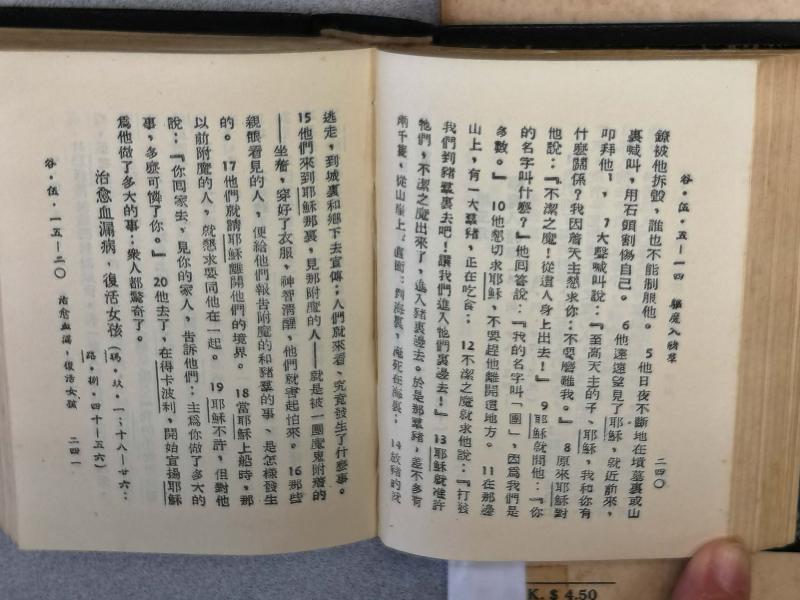 谷·伍·五—一四　驅魔入豬羣　二四〇
鐐被他拆毀，誰也不能制服他。　5他日夜不斷地在墳墓裏或山
裏喊叫，用石頭割傷自己。　6他遠遠望見了耶穌，就近前來，
叩拜他，　7大聲喊叫說：『至高天主的子、耶穌，我和你有
什麼關係？我因着天主懇求你：不要磨難我。』　8原來耶穌對
他說：『不潔之魔！從這人身上出去！』　9耶穌就問他：『你
的名字叫什麼？』他回答說：『我的名字叫「團」，因爲我們是
多數。』　10他懇切求耶穌，不要趕他離開這地方。　11在那邊
山上，有一大羣豬，正在吃食；　12不潔之魔就求他說：『打發
我們到豬羣裏去吧！讓我們進入牠們裏邊去！』　13耶穌就准許
牠們，不潔之魔出來了，進入豬裏邊去。於是那羣豬，差不多有
兩千隻，從山崖上，直闖到海裏，淹死在海裏；　14放豬的就
逃走，到城裏和鄉下去宣傳；人們就來看、究竟發生了什麼事。
15他們來到耶穌那裏，見那附魔的人——就是被一團魔鬼附着的
——坐着，穿好了衣服，神智清醒，他們就害起怕來。　16那些
親眼看見的人，便給他們報告附魔的和豬羣的事、是怎樣發生
的。　17他們就請耶穌離開他們的境界。　18當耶穌上船時，那
以前附魔的人，就懇求要同他在一起。　19耶穌不許，但對他
說：『你回家去，見你的家人，告訴他們：主爲你做了多大的
事，多麼可憐了你。』　20他去了，在得卡波利，開始宣揚耶穌
爲他做了多大的事：衆人都驚奇了。
治愈血漏病，復活女孩（瑪·玖·一；十八—廿六：
路·捌·四十—五六）
谷·伍·一五—二〇　治愈血漏，復活女孩　二四一
K. $ 4.50